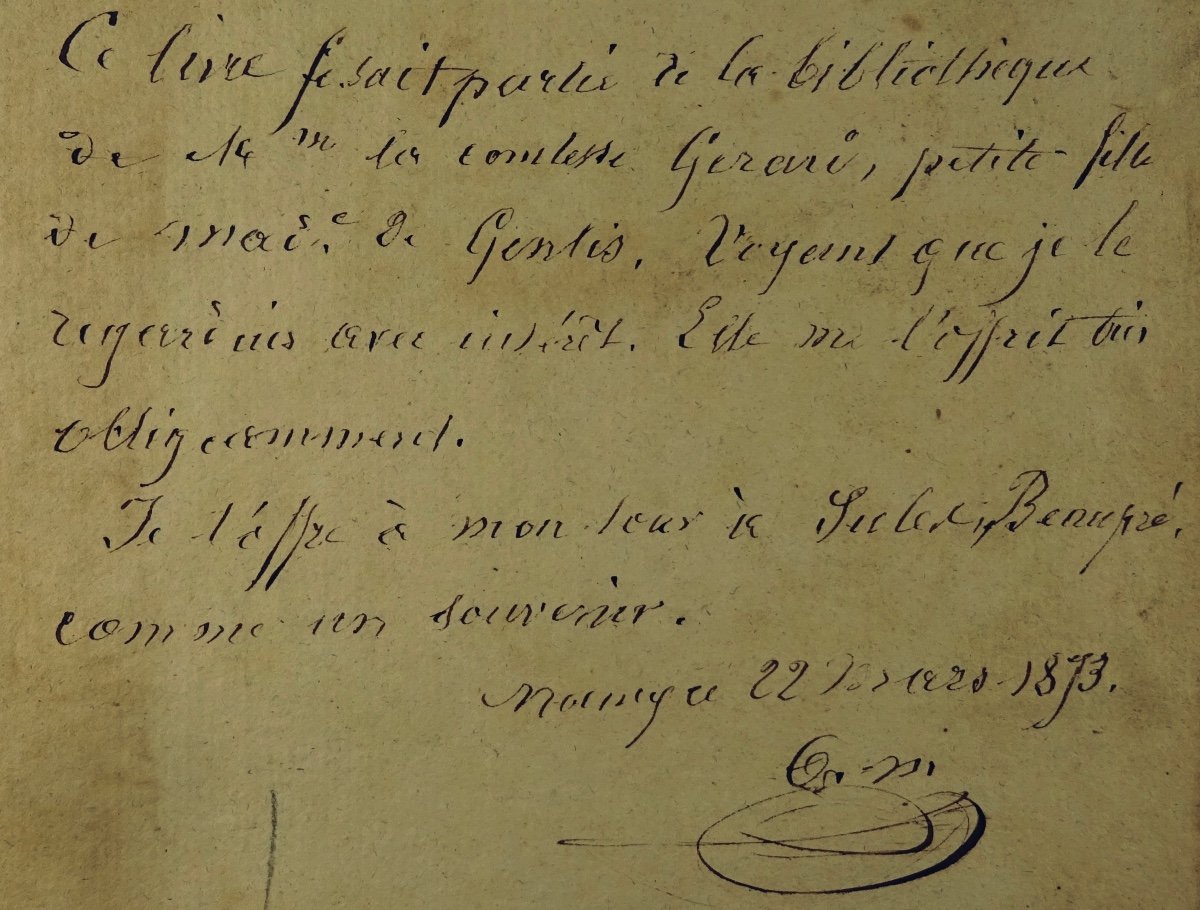 Ce livre fesait partie de la bibliothèque
de Mm la comtesse Gerard, petite fille
de made. de Genlis. Voyant que je le
regardais avec intérêt. Elle me l'offrit très
obligeamment.
Je l'offre à mon tour à Jules Beaupré.
comme un souvenir.
22 Mars 1873.